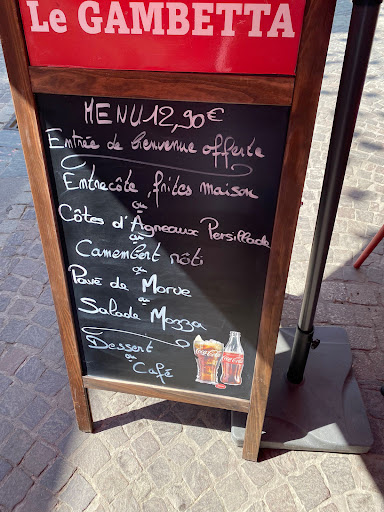 Le GAMBETTA
MENU 12,90€
Entrée de bienvenue offerte
Entrecôte, frites maison
ou
Côtes d'Agneaux Persillade
ou
Camembert rôti
ou
Pavé de Morue
ou
Salade Mozza
Dessert
ou
Café
Coca-Cola
Coca-Cola